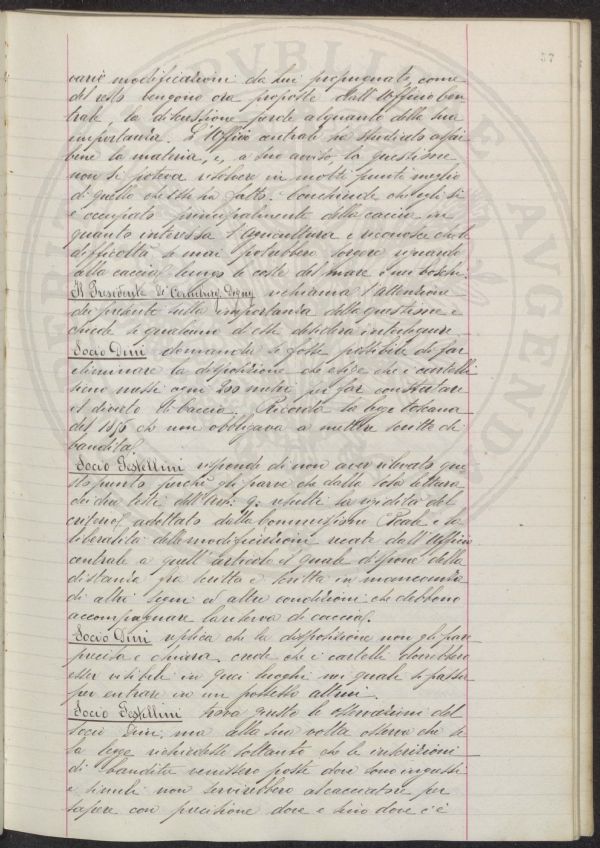 57
varie modificazioni da lui propugnate, come
del resto vengono ora proposte dall'Ufficio Cen
trale, la discussione perde alquanto della sua
importanza. L'Ufficio centrale ha studiato assai
bene la materia, e, a suo avviso, la questione
non si poteva risolvere in molti punti meglio
di quello che essa ha fatto. Conchiude che egli si
è occupato principalmente della caccia in
quanto interessa l'agricoltura e riconosce che le
difficoltà se mai potrebbero sorgere riguardo
alla caccia lungo le coste del mare e nei boschi.
Il Presidente De Cambray Digny richiama l'attenzione
dei presenti sulla importanza della questione e
chiede se qualcuno di essi desidera interloquire.
Socio Dini domanda se fosse possibile di far
eliminare la disposizione che esige che i cartelli
sieno messi ogni 200 metri per far constatare
il divieto di caccia. Ricorda la legge toscana
del 1856 che non obbligava a mettere scritte di
bandita.
Socio Pestellini risponde di non aver rilevato que
sto punto perchè gli pareva che dalla sola lettura
dei due testi dell'art. 9. risulti la rigidità del
criterio adottato dalla Commissione Reale e la
liberalità delle modificazioni recate dall'Ufficio
centrale a quell'articolo il quale dispone della
distanza fra scritta e scritta in mancanza
di altri segni ed altre condizioni che debbono
accompagnare la riserva di caccia.
Socio Dini replica che la disposizione non gli pare
precisa e chiara. crede che i cartelli dovrebbero
esser visibili in quei luoghi nei quali si passa
per entrare in un possesso altrui.
Socio Pestellini trova giuste le osservazioni del
socio Dini, ma alla sua volta osserva che se
la legge richiedesse soltanto che le iscrizioni
di bandita venissero poste dove sono ingressi
e simili non servirebbero al cacciatore per
sapere con precisione dove e sino dove c'è